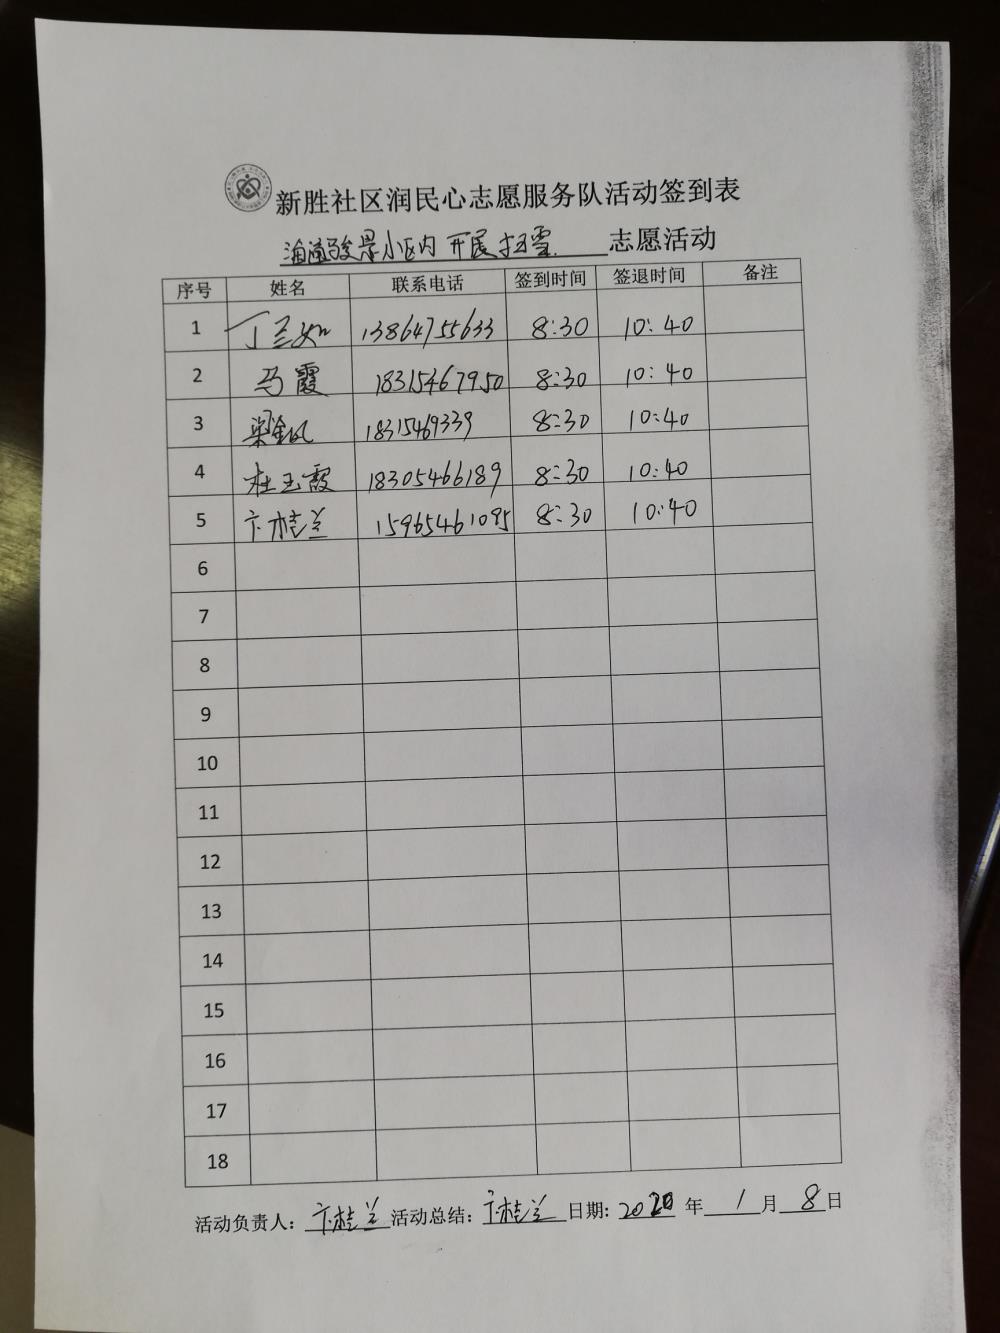 新胜社区润民心志愿服务队活动签到表
海通骏景小区内开展扫雪 志愿活动
序号 姓名 联系电话 签到时间 签退时间 备注
1 丁兰如 13864755633 8:30 10:40
2 马霞 18315467950 8:30 10:40
3 梁 18315469339 8:30 10:40
4 杜玉霞 18305466189 8:30 10:40
5 卞桂兰 15965461095 8:30 10:40
6
7
8
9
10
11
12
13
14
15
16
17
18
活动负责人: 卞桂兰 活动总结: 卞桂兰 日期: 2020 年 1 月 8 日